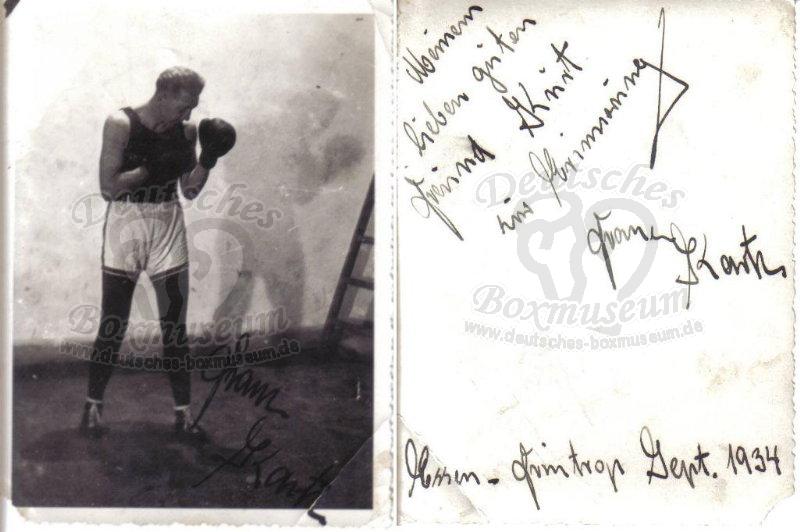 Deutsches
Boxmuseum
www.deutsches-boxmuseum.de
Franz
Meinem
lieben guten
Freund Kurt
zur Erinnerung
Franz
Deutsches
Boxmuseum
www.deutsches-boxmuseum.de
Essen - Frintrop Sept. 1934